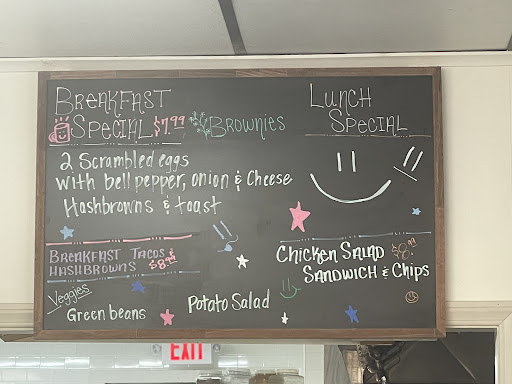 BREAKFAST
SPECIAL $7.99
Brownies
2 Scrambled eggs
with bell pepper, onion & Cheese
Hashbrowns & toast
BREAKFAST TACOS &
HASHBROWNS $8.99
Veggies
Green beans
Potato Salad
LUNCH
SPECIAL
CHICKEN SALAD
SANDWICH & Chips
EXIT